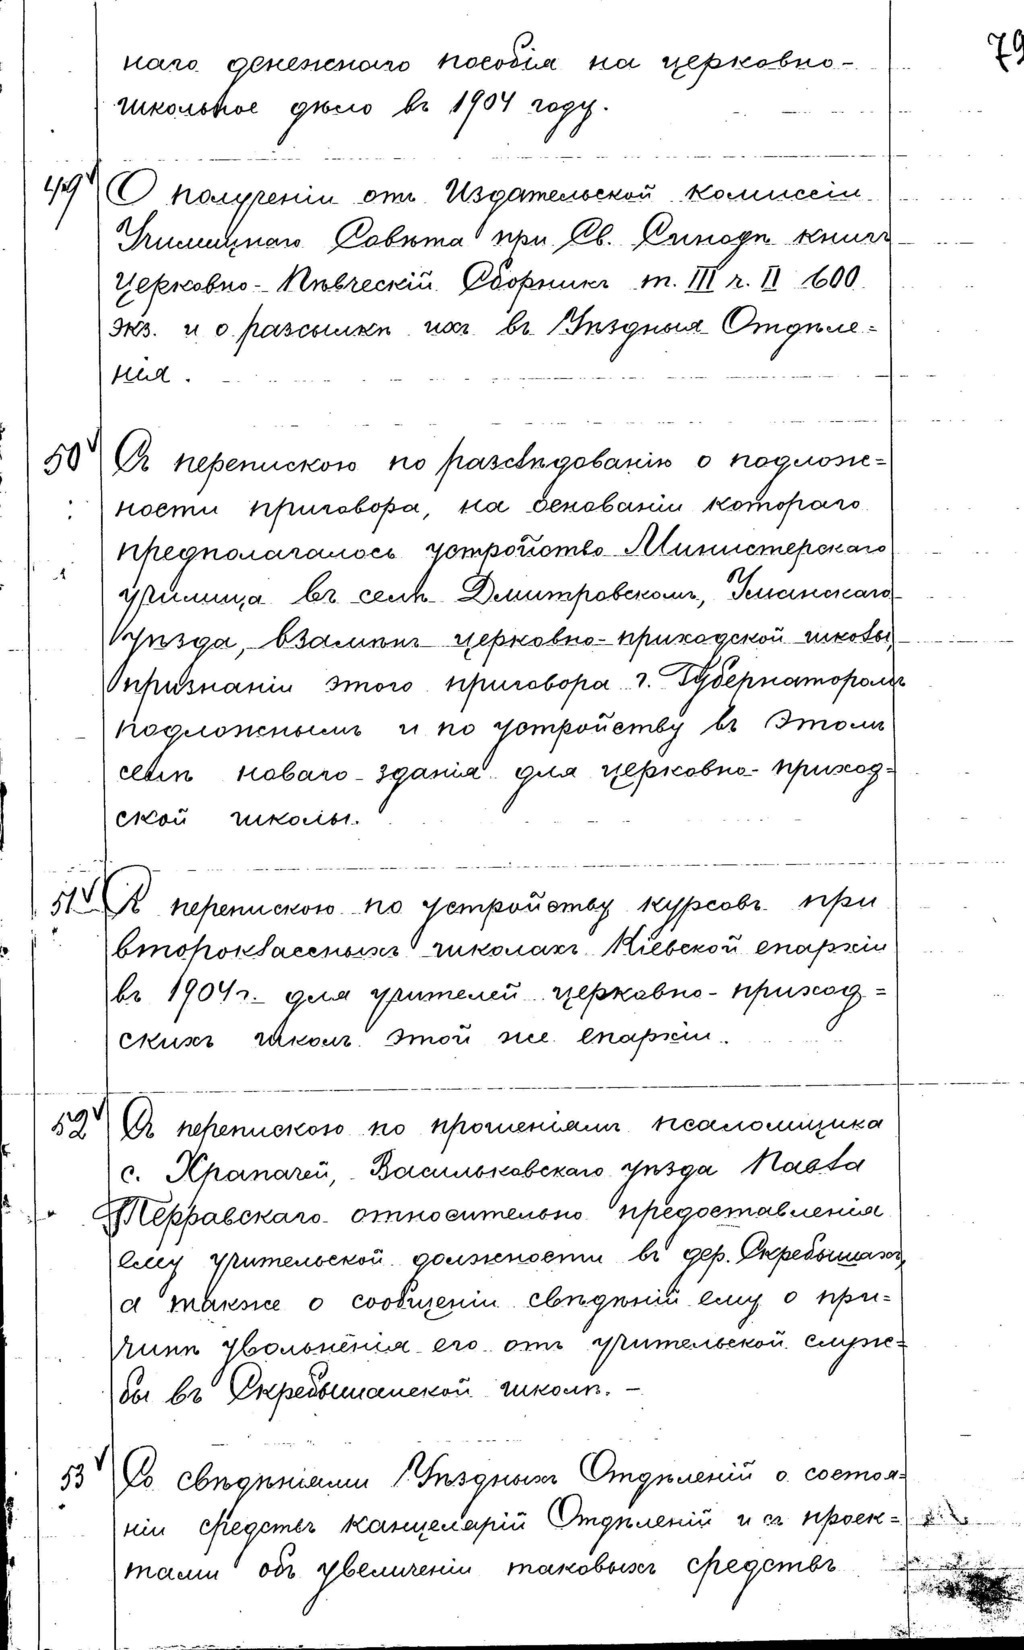 79
наго денежнаго пособія на церковно-
школьное дѣло въ 1904 году.
49 О полученіи отъ Издательской комиссіи
Училищнаго Совѣта при Св. Синодѣ книгъ
Церковно-Пѣвческій Сборникъ т. III ч. II 600
экз. и о разсылкѣ ихъ въ Уѣздныя Отдѣле=
нія.
50 Съ перепискою по разслѣдованію о подлож=
ности приговора, на основаніи котораго
предполагалось устройство Министерскаго
училища въ селѣ Дмитровскомъ, Уманскаго
уѣзда, взамѣнъ церковно-приходской школы,
признаніи этого приговора г. Губернаторомъ
подложнымъ и по устройству въ этомъ
селѣ новаго зданія для церковно-приход=
ской школы.
51 Съ перепискою по устройству курсовъ при
второклассныхъ школахъ Кіевской епархіи
въ 1904 г. для учителей церковно-приход=
скихъ школъ этой же епархіи.
52 Съ перепискою по прошеніямъ псаломщика
с. Храпачей, Васильковскаго уѣзда Павла
относительно предоставленія
ему учительской должности въ дер. Скребышахъ,
а также о сообщеніи свѣдѣній ему о при=
чинѣ увольненія его отъ учительской служ=
бы въ Скребышанской школѣ. -
53 Со свѣдѣніями Уѣздныхъ Отдѣленій о состоя=
ніи средствъ канцелярій Отдѣленій и съ проек=
тами объ увеличеніи таковыхъ средствъ